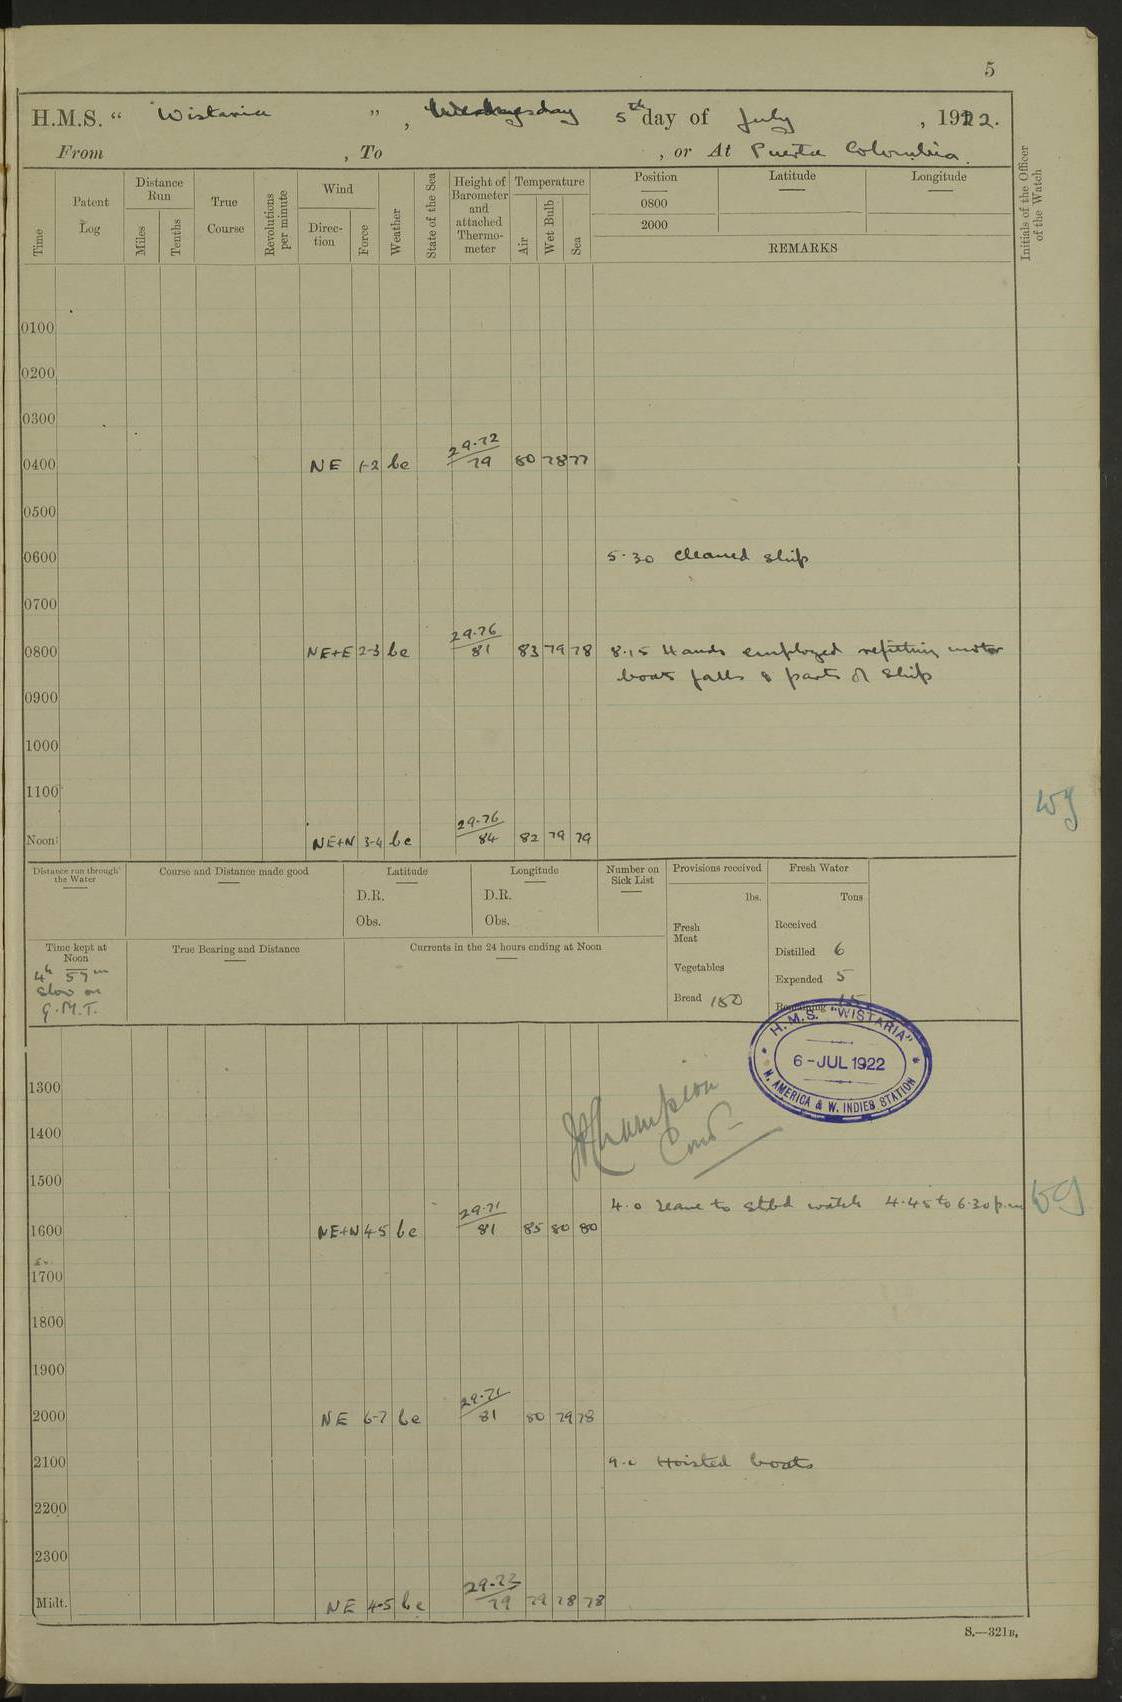 5
H.M.S. “ Wistaria ” , Wednesday 5th day of July , 1922.
From , To , or At Puerta Colombia.
Time
Patent Log
Distance Run
Miles
Tenths
True Course
Revolutions per minute
Wind
Direction
Force
Weather
State of the Sea
Height of Barometer and attached Thermometer
Temperature
Air
Wet Bulb
Sea
Position Latitude Longitude
0800
2000
REMARKS
Initials of the Officer of the Watch
0100
0200
0300
0400 NE 1-2 bc 29.72/79 80 78 77
0500
0600 5.30 Cleaned ship
0700
0800 NE+E 2-3 bc 29.76/81 83 79 78 8.15 Hands employed refitting motor
boats falls & parts of ship
0900
1000
1100
WG
Noon NE+N 3-4 bc 29.76/84 82 79 79
Distance run through the Water
Course and Distance made good
Latitude
D.R.
Obs.
Longitude
D.R.
Obs.
Number on Sick List
Provisions received
lbs.
Fresh Meat
Vegetables
Bread 180
Fresh Water
Tons
Received
Distilled 6
Expended 5
Remaining 15
Time kept at Noon
4h 57m
slow on
G.M.T.
True Bearing and Distance
Currents in the 24 hours ending at Noon
H.M.S. "WISTARIA"
6-JUL 1922
N. AMERICA & W. INDIES STATION
1300
Champion
1400
1500
4.0 Leave to stbd watch 4.45 to 6.30 p.m.
WG
1600 NE+N 4-5 bc 29.71/81 85 80 80
1700
1800
1900
2000 NE 6-7 bc 29.71/81 80 79 78
2100 9.0 Hoisted boats
2200
2300
Midt. NE 4-5 bc 29.73/79 79 78 78
S.—321B.